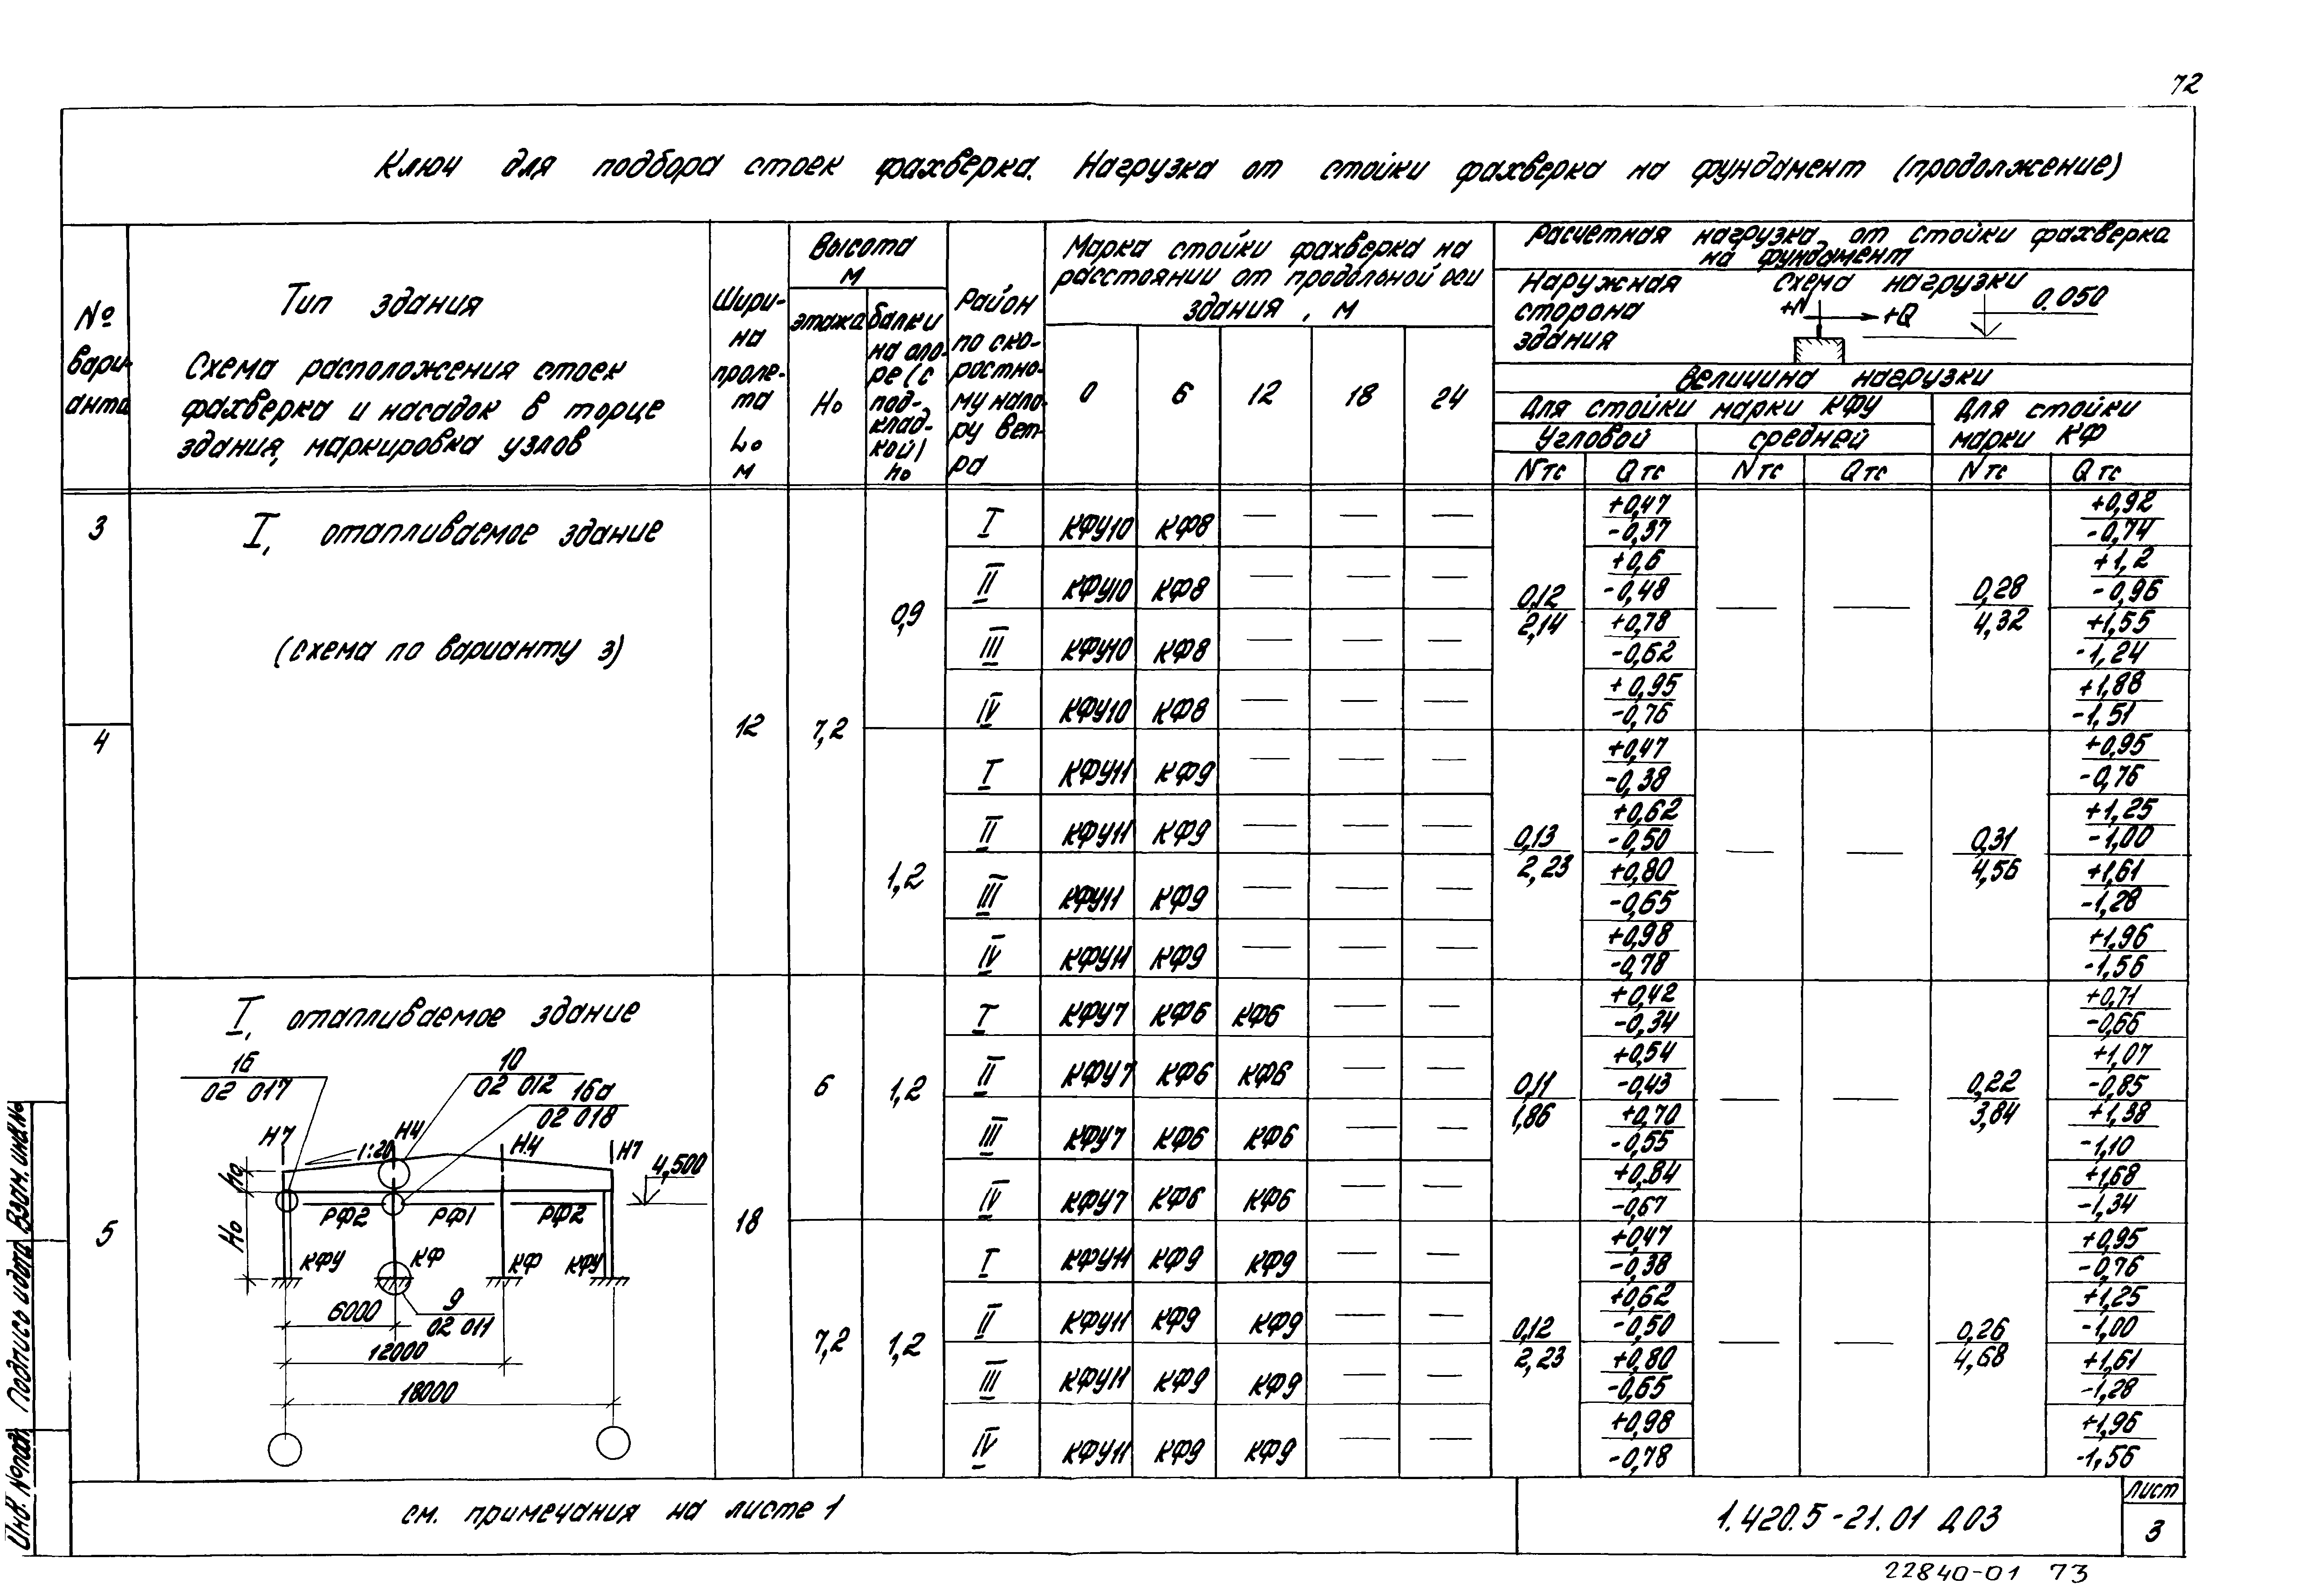 72
Ключ для подбора стоек фахверка. Нагрузка от стойки фахверка на фундамент (продолжение)
№ вари-анта
Тип здания
Схема расположения стоек
фахверка и насадок в торце
здания, маркировка узлов
Шири-на проле-та L₀ м
Высота м
этажа H₀
балки на опо-ре (с под-клад-кой) h₀
Район по ско-ростно-му напо-ру вет-ра
Марка стойки фахверка на
расстоянии от продольной оси
здания, м
0 6 12 18 24
Расчетная нагрузка от стойки фахверка
на фундамент
Наружная сторона здания
Схема нагрузки
+N +Q 0.050
Величина нагрузки
Для стойки марки КФУ
Для стойки марки КФ
Угловой средней
N тс Q тс N тс Q тс N тс Q тс
3
I, отапливаемое здание
(схема по варианту 3)
4
12 7,2
0,9
0,12 2,14 — — 0,28 4,32
I КФУ10 КФ8 — — — +0,47 -0,37 +0,92 -0,74
II КФУ10 КФ8 — — — +0,6 -0,48 +1,2 -0,96
III КФУ10 КФ8 — — — +0,78 -0,62 +1,55 -1,24
IV КФУ10 КФ8 — — — +0,95 -0,76 +1,88 -1,51
1,2
0,13 2,23 — — 0,31 4,56
I КФУ11 КФ9 — — — +0,47 -0,38 +0,95 -0,76
II КФУ11 КФ9 — — — +0,62 -0,50 +1,25 -1,00
III КФУ11 КФ9 — — — +0,80 -0,65 +1,61 -1,28
IV КФУ11 КФ9 — — — +0,98 -0,78 +1,96 -1,56
5
I, отапливаемое здание
16 02 017
10 02 012
16а 02 018
Н7 Н4 Н4 Н7
1:20
4,500
h₀
H₀
РФ2 РФ1 РФ2
КФУ КФ КФ КФУ
9 02 011
6000
12000
18000
18
6 1,2
0,11 1,86 — — 0,22 3,84
I КФУ7 КФ6 КФ6 — — +0,42 -0,34 +0,71 -0,66
II КФУ7 КФ6 КФ6 — — +0,54 -0,43 +1,07 -0,85
III КФУ7 КФ6 КФ6 — — +0,70 -0,55 +1,38 -1,10
IV КФУ7 КФ6 КФ6 — — +0.84 -0,67 +1,68 -1,34
7,2 1,2
0,12 2,23 — — 0,26 4,68
I КФУ11 КФ9 КФ9 — — +0,47 -0,38 +0,95 -0,76
II КФУ11 КФ9 КФ9 — — +0,62 -0,50 +1,25 -1,00
III КФУ11 КФ9 КФ9 — — +0,80 -0,65 +1,61 -1,28
IV КФУ11 КФ9 КФ9 — — +0,98 -0,78 +1,96 -1,56
см. примечания на листе 1
1.420.5-21.01 Д03
Лист
3
22840-01 73
Инв. № подл. Подпись и дата Взам. инв. №